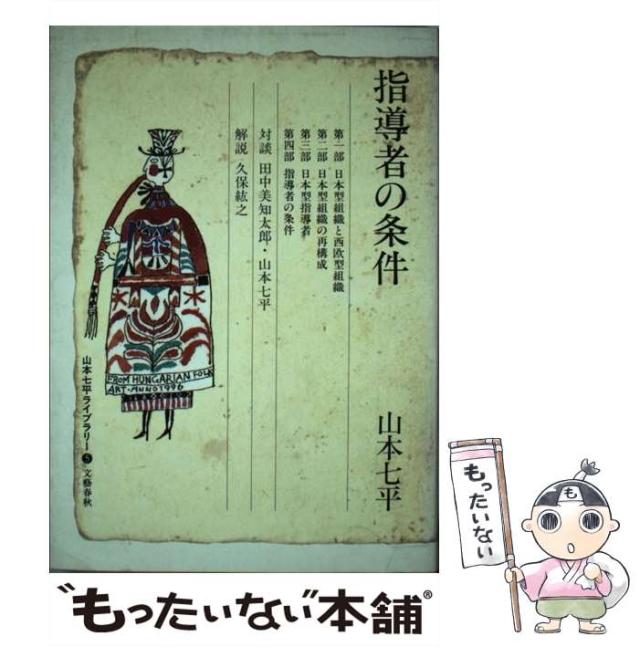 指導者の条件
山本七平
第一部 日本型組織と西欧型組織
第二部 日本型組織の再構成
第三部 日本型指導者
第四部 指導者の条件
対談 田中美知太郎・山本七平
解説 久保紘之
FROM HUNGARIAN FOLK
ART・ANNO1996
山本七平ライブラリー5 文藝春秋
も
もったいない
"もったいない"本舗®